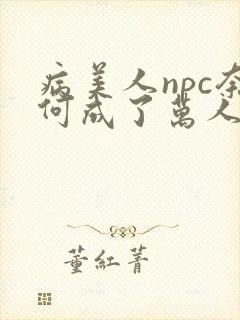 病美人npc奈
何成了萬人
董紅菁